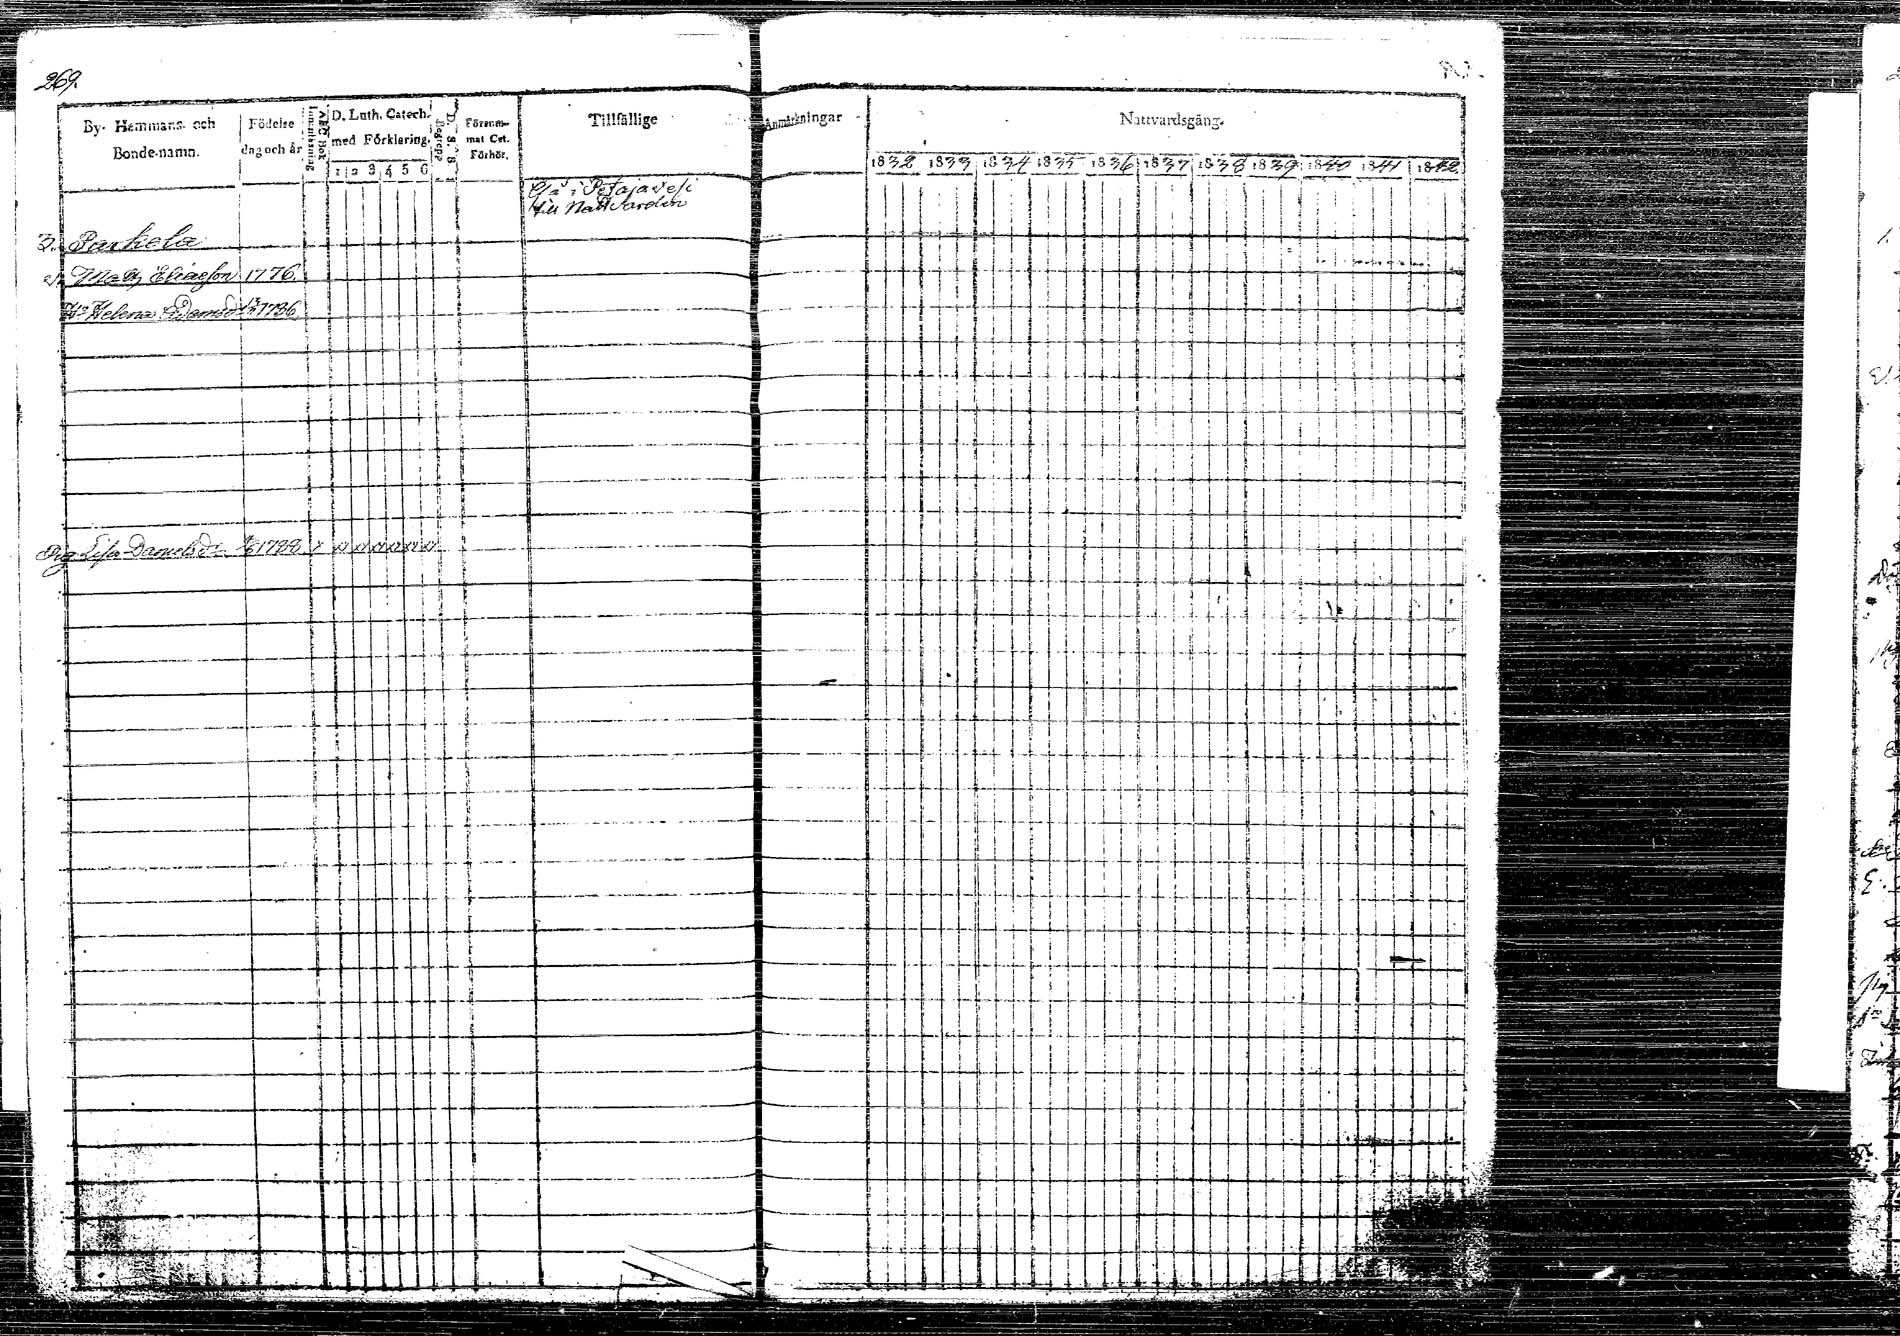 269.
By- Hemmans- och
Bonde-namn.
Födelse
dag och år
Innanläsning
ABC Bok
D. Luth. Catech.
med Förklaring.
1 2 3 4 5 6
Begrepp
D. S. B.
Försum-
mat Cat.
Förhör.
Tillfällige
Anmärkningar
Nattvardsgång.
1832 1833 1834 1835 1836 1837 1838 1839 1840 1841 1842
Gå i Petäjävesi
till Nattvarden
3. Parkela
Matts Eliaesson 1776.
Hu Helena 1786
Pig. Lisa Danielsdr 1788